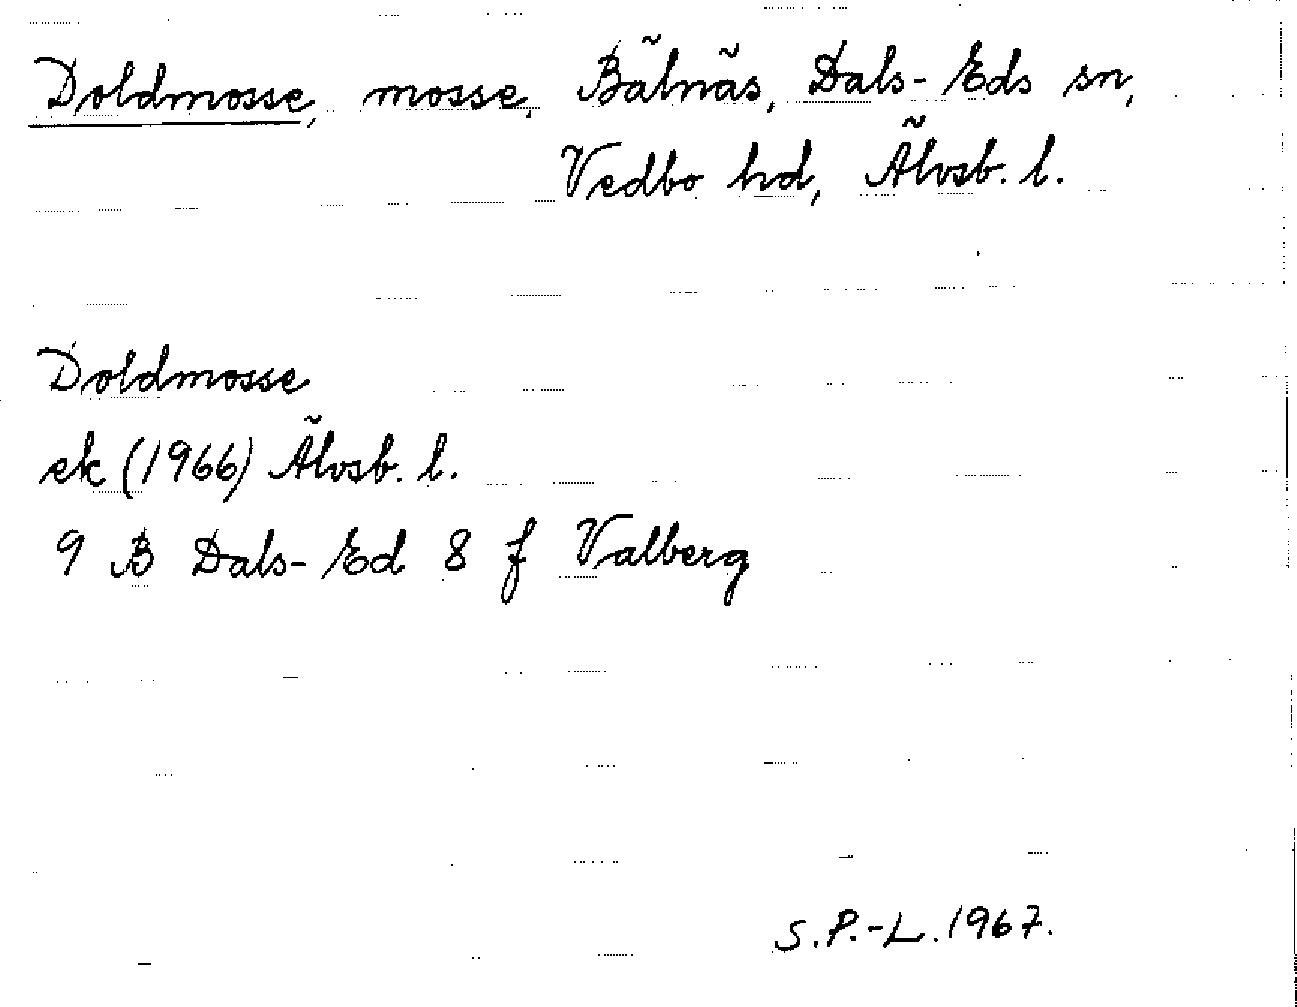 Doldmosse, mosse, Bälnäs, Dals-Eds sn,
Vedbo hd, Älvsb. l.
Doldmosse
ek (1966) Älvsb. l.
9 B Dals-Ed 8 f Valberg
S.P.-L. 1967.